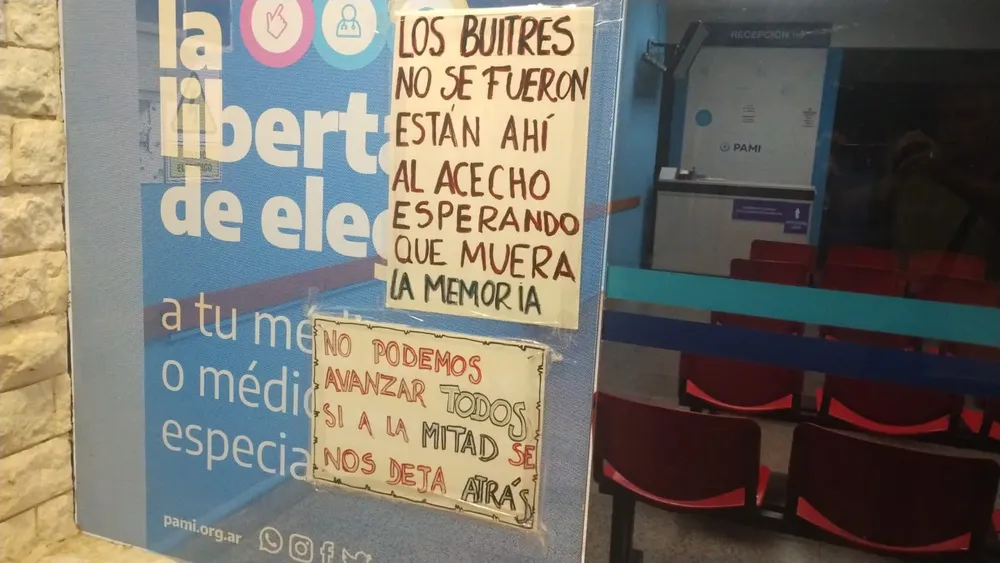 la
liberta
de elec
a tu mé
o médic
especia
pami.org.ar
LOS BUITRES
NO SE FUERON
ESTÁN AHÍ
AL ACECHO
ESPERANDO
QUE MUERA
LA MEMORIA
NO PODEMOS
AVANZAR TODOS
SI A LA MITAD SE
NOS DEJA ATRÁS
RECEPCIÓN
PAMI